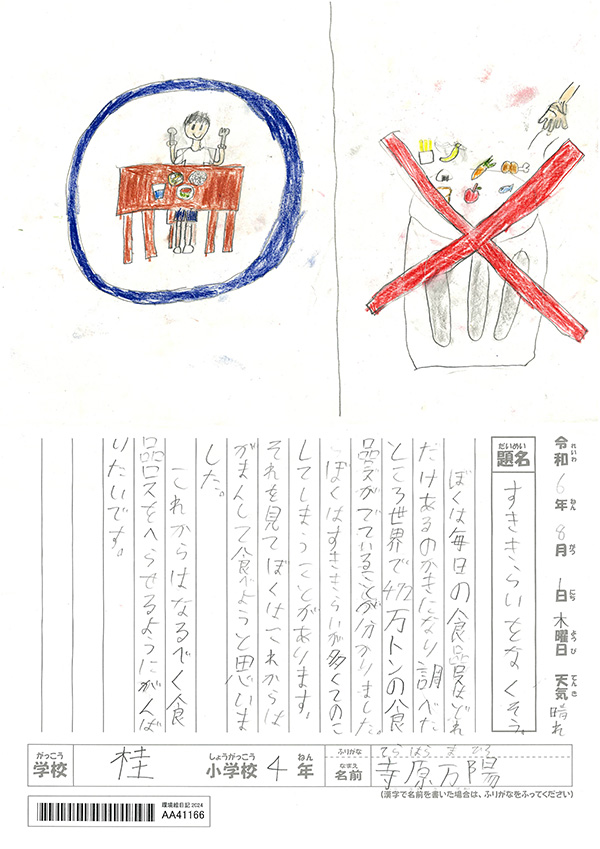 令和6年8月1日木曜日 天気 晴れ
題名 すききらいをなくそう。
ぼくは毎日の食品ロスはどれ
だけあるのかきになり調べた
ところ世界で472万トンの食
品ロスがでていることが分かりました。
ぼくはすききらいが多くてのこ
してしまうことがあります。
それを見てぼくはこれからは
がまんして食べようと思いま
した。
これからはなるべく食
品ロスをへらせるようにがんば
りたいです。
がっこう しょうがっこう ねん ふりがな てらはら まひろ
学校 桂 小学校 4年 名前 寺原万陽
(漢字で名前を書いた場合は、ふりがなをふってください)
環境絵日記2024
AA41166